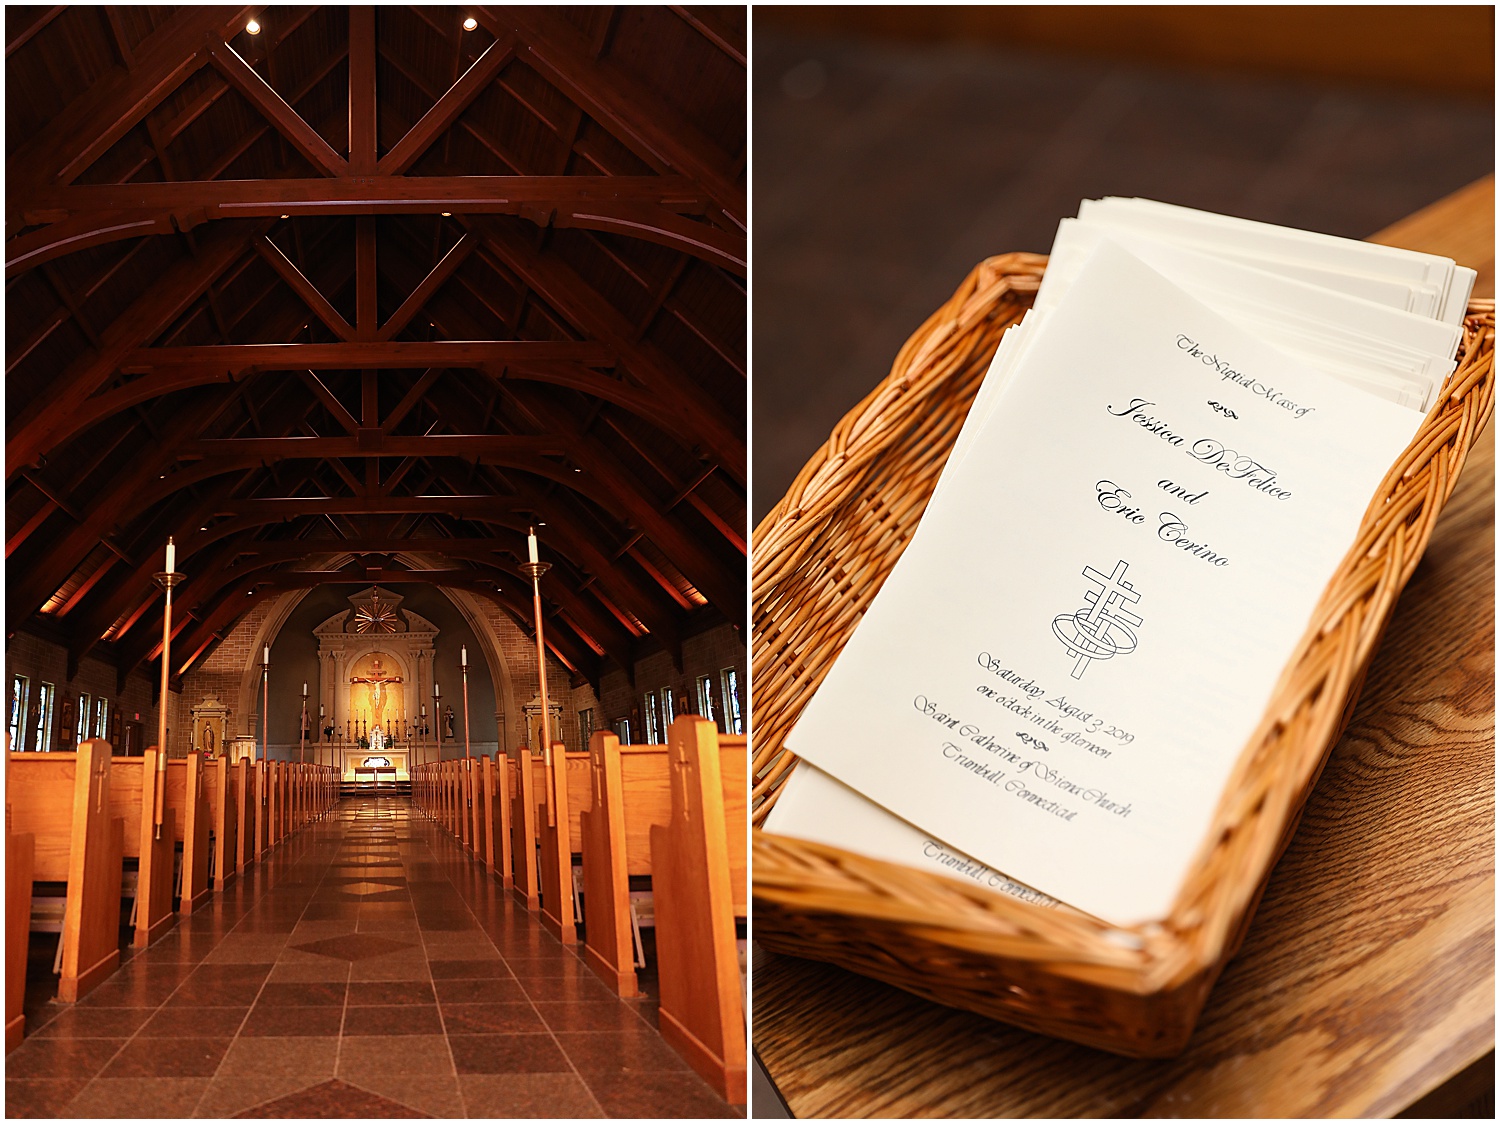 The Nuptial Mass of
Jessica DeFelice
and
Eric Cerino
Saturday, August 3, 2019
one o'clock in the afternoon
Saint Catherine of Siena Church
Trumbull, Connecticut
Trumbull, Connecticut